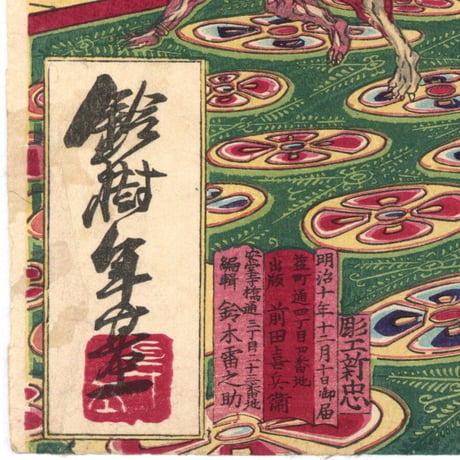 鈴樹年基
彫工新忠
明治十年十二月十日御届
並町通四丁目四番地
出版 前田喜兵衛
安堂寺橋通三丁目二十三番地
編輯 鈴木雷之助